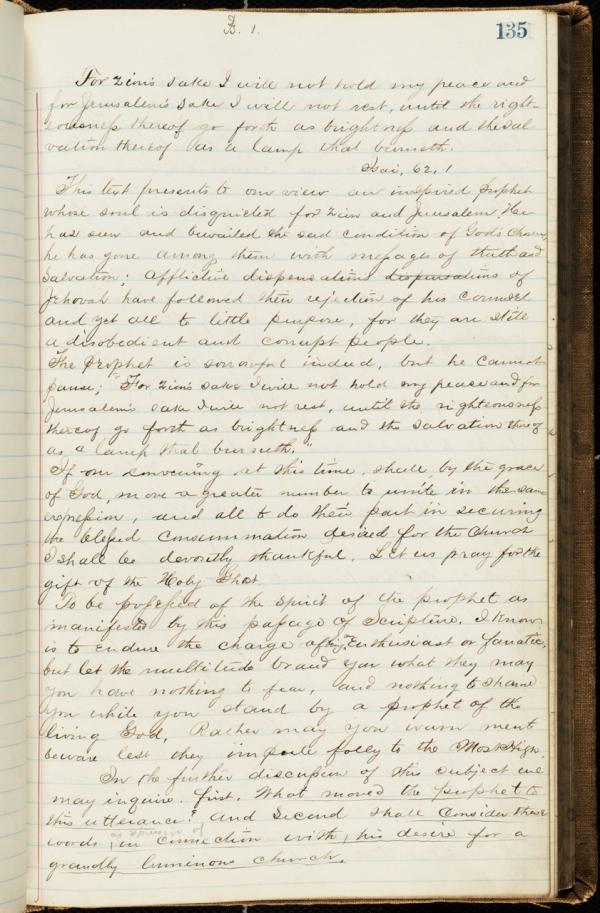 B. 1.
135
For Zion's sake I will not hold my peace and
for Jerusalem's sake I will not rest, until the right-
eousness thereof go forth as brightness and the sal-
vation thereof as a lamp that burneth.
Isai, 62, 1
This text presents to our view an inspired prophet
whose soul is disquieted for Zion and Jerusalem. He
has seen and bewailed the sad condition of God's
he has gone among them with messages of truth and
Salvation; afflictive dispensations dispensations of
Jehovah have followed their rejection of his counsel
and yet all to little purpose, for they are still
a disobedient and corrupt people.
The prophet is sorrowful indeed, but he cannot
pause; "For Zion's sake I will not hold my peace and for
Jerusalem's sake I will not rest, until the righteousness
thereof go forth as brightness and the salvation thereof
as a lamp that burneth."
If our convening at this time, shall by the grace
of God, move a greater number to unite in the same
expression, and all to do their part in securing
the blessed consummation desired for the Church
I shall be devoutly thankful. Let us pray for the
gift of the Holy Ghost
To be possessed of the spirit of the prophet as
manifested by this passage of Scripture, I know
is to endure the charge of Enthusiast or fanatic,
but let the multitude brand you what they may
you have nothing to fear, and nothing to shame
you while you stand by a prophet of the
living God, Rather may you warn men to
beware lest they impute folly to the Most High.
In the further discussion of this subject we
may inquire. first. What moved the prophet to
this utterance?, and Second shall consider these
words, in connection with, his desire for a
as of
grandly luminous church.